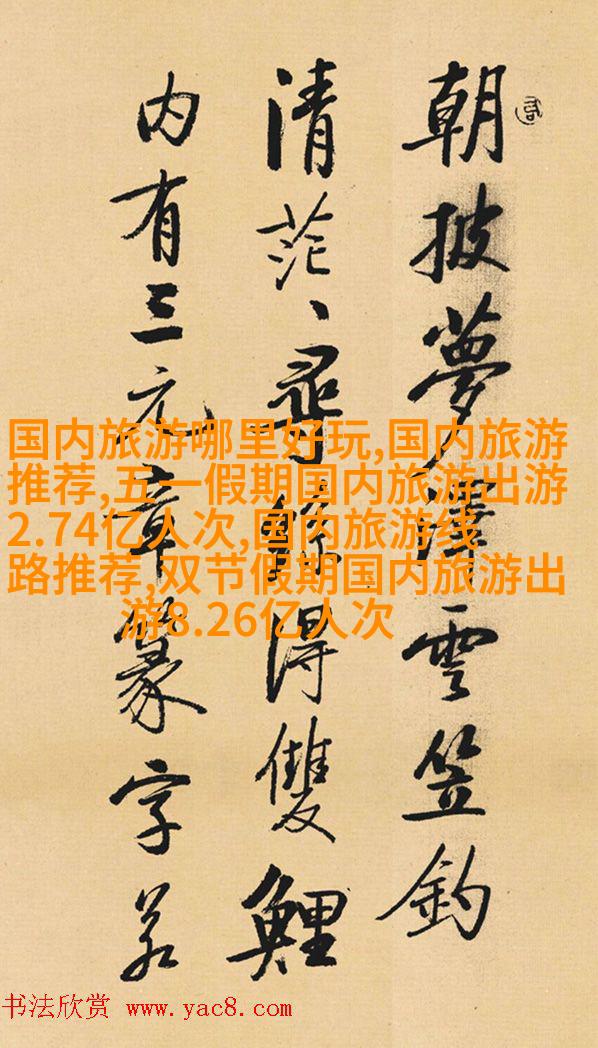 朝披夢澤雲笠釣
清茫、尋絲得雙鯉
内有三元章篆字若
国内旅游哪里好玩,国内旅游
推荐,五一假期国内旅游出游
2.74亿人次,国内旅游线
路推荐,双节假期国内旅游出
游8.26亿人次
书法欣赏 www.yac8.com